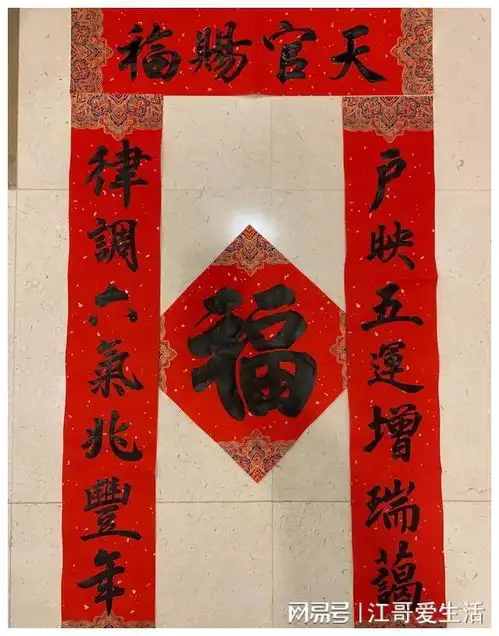 天官賜福
戶映五運增瑞藹
律調六氣兆豐年
福
网易号 | 江哥爱生活